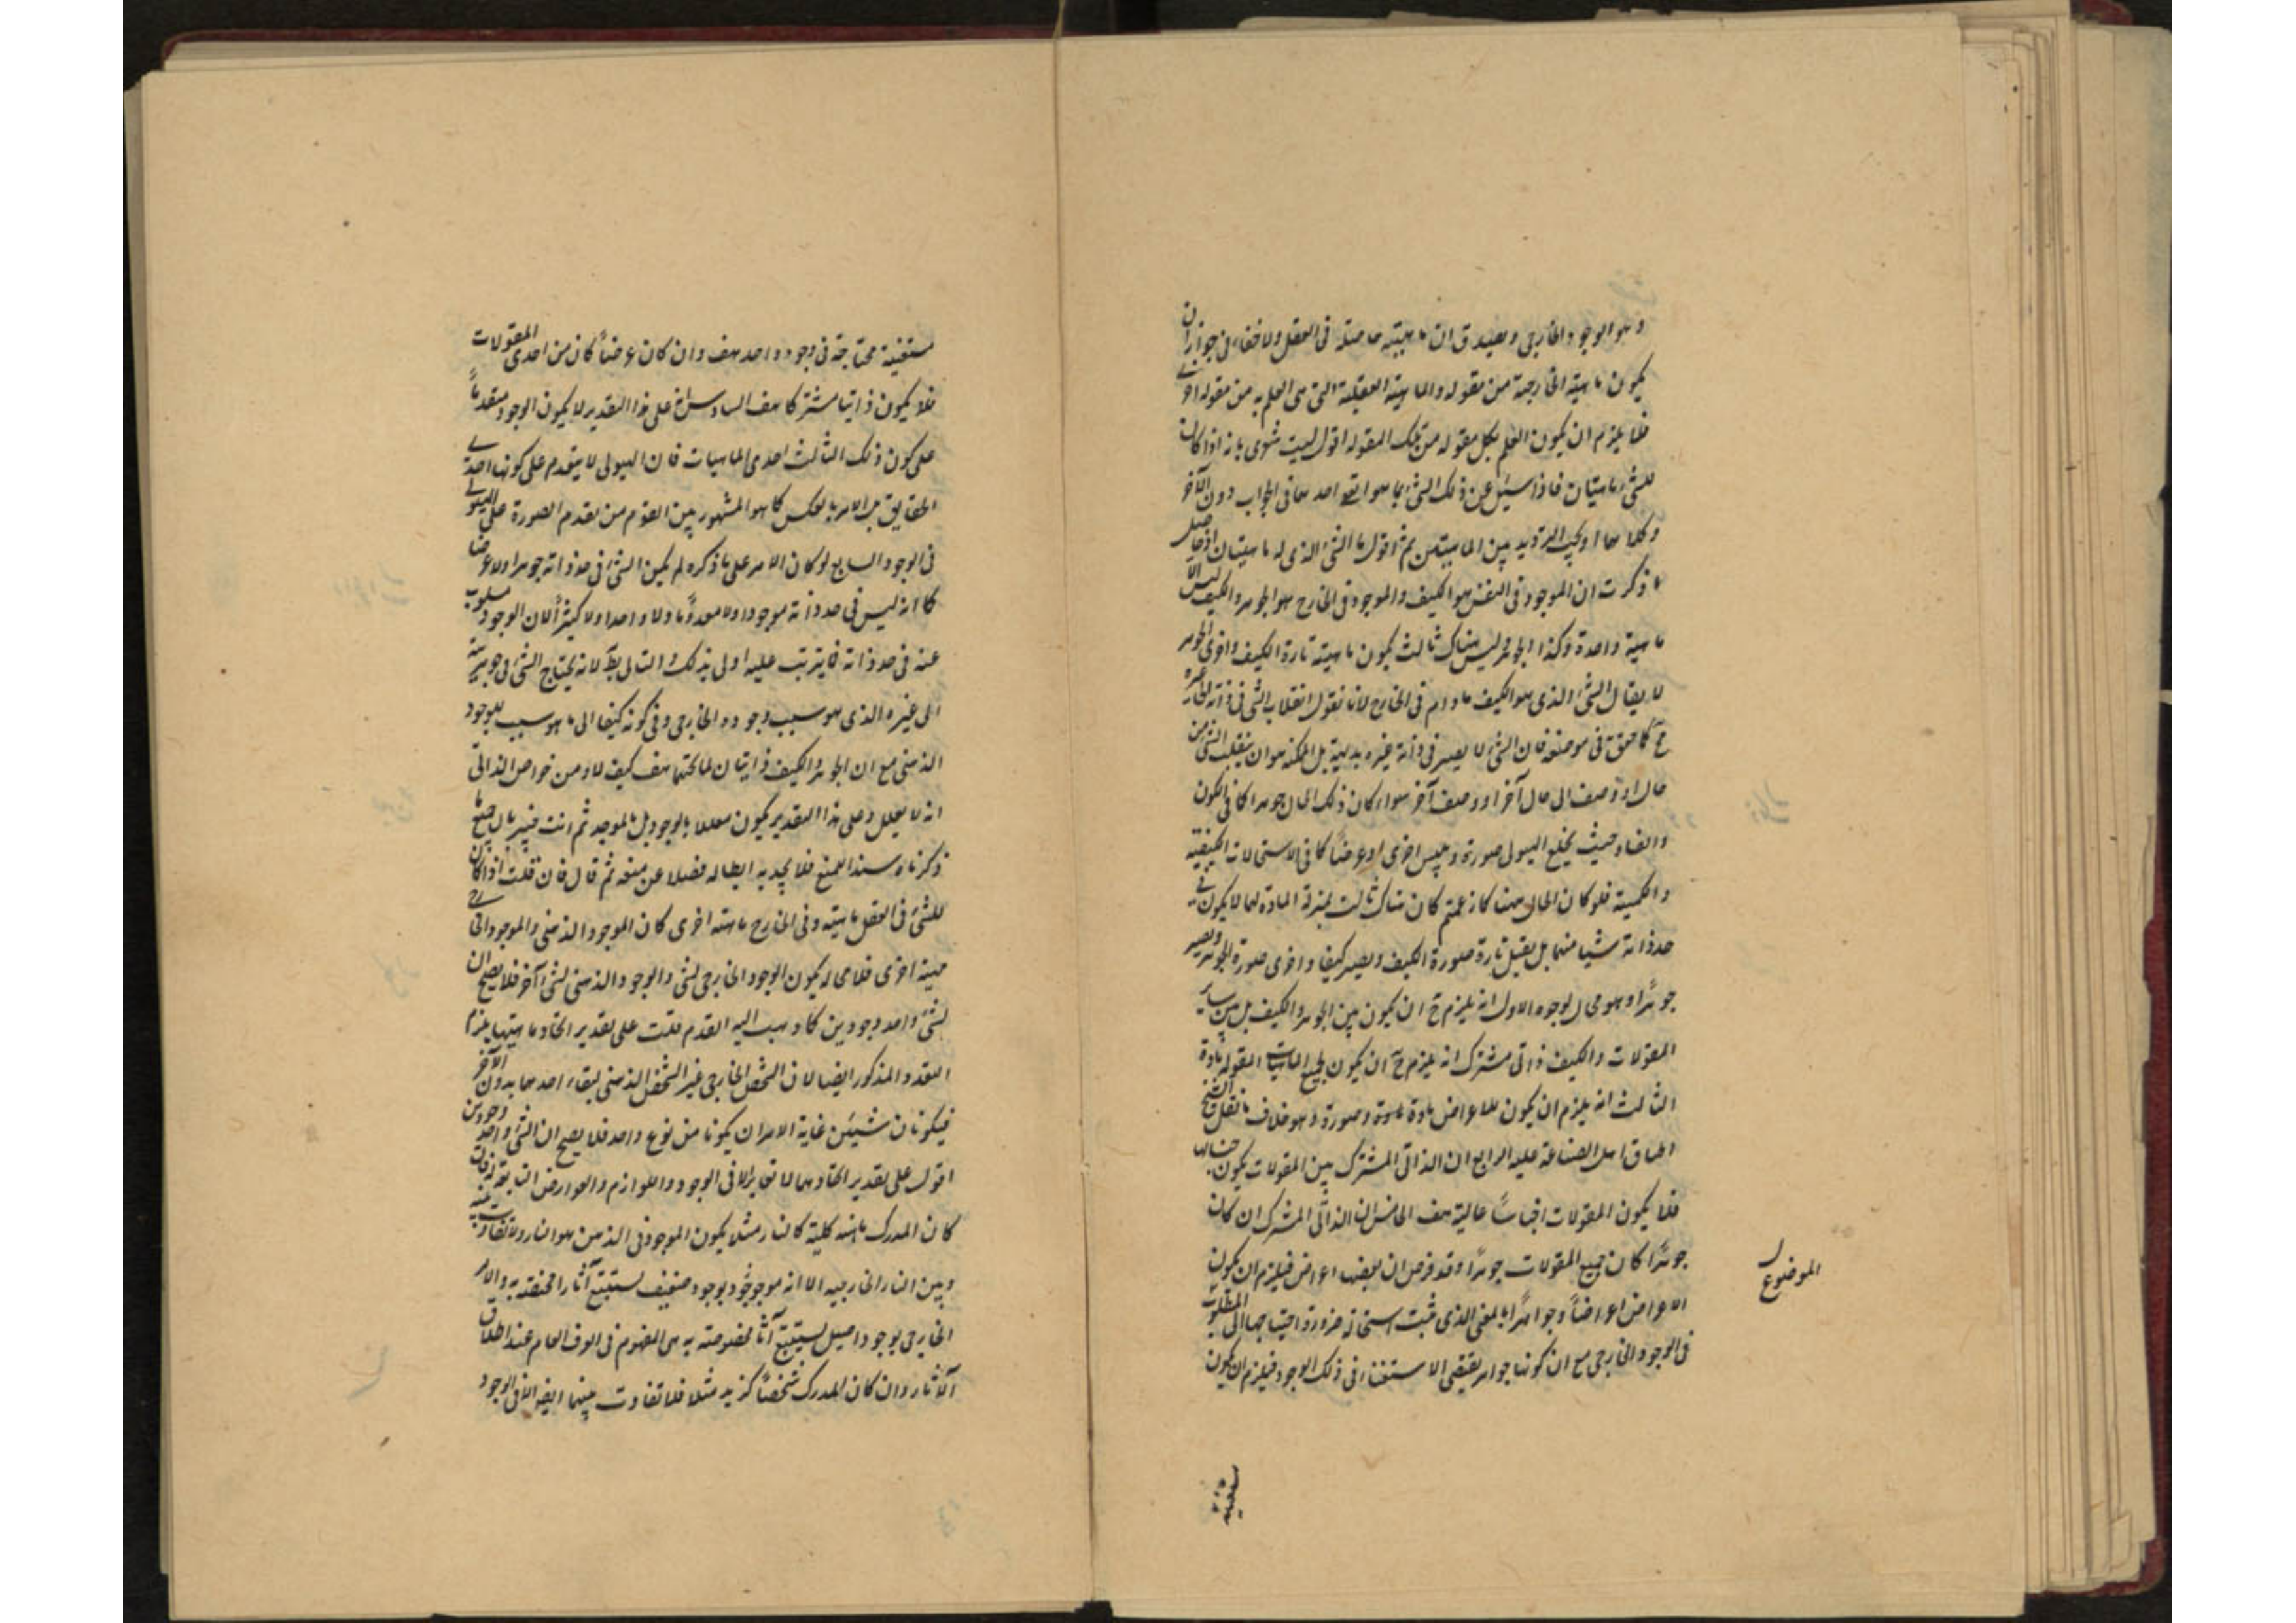 وهو الوجود الخارجي ويصدق ان ماهيته حاصلة في العقل ولا خفاء في جواز ان
يكون ماهيته الخارجية من مقولة والماهية العقلية التي هي العلم به من مقولة اخرى
فلا يلزم ان يكون العلم بكل مقولة من تلك المقولة اقول ليت شعري بانه اذا كان
للشئ ماهيتان فاذا سئل عن ذلك الشئ بما هو ايقع احدهما في الجواب دون الآخر
وكلاهما او يجب الترديد بين الماهيتين ثم اقول ما الشئ الذي له ماهيتان اذ حاصل
ما ذكرت ان الموجود في النفس هو الكيف والموجود في الخارج هو الجوهر والكيف ليس الا
ماهية واحدة وكذا الجوهر ليس هناك ثالث يكون ماهيته تارة الكيف واخرى الجوهر
لا يقال الشئ الذي هو الكيف مادام في الخارج لانا نقول انقلاب الشئ في ذاته الى غيره
مح كما حقق في موضعه فان الشئ لا يصير في ذاته غيره بديهية بل الممكن هو ان ينقلب الشئ من
حال او وصف الى حال آخر او وصف آخر سواء كان ذلك الحال جوهرا كما في الكون
والفساد حيث يخلع الهيولى صورة ويلبس اخرى او عرضاً كما في الاستحالات الكيفية
والكمية فلو كان الحال ههنا كما زعمتم كان هناك ثالث بمنزلة المادة لهما لا يكون في
حد ذاته شيئا منهما بل يقبل تارة صورة الكيف ويصير كيفا واخرى صورة الجوهر ويصير
جوهراً وهو محال لوجوه الاول انه يلزم ح ان يكون بين الجوهر والكيف بل بين سائر
المقولات والكيف ذاتي مشترك انه يلزم ح ان يكون لجميع الماهيات المقولة مادة
الثالث انه يلزم ان يكون للاعراض مادة وصورة وهو خلاف ما نقل الشيخ
اطباق اهل الصناعة عليه الرابع ان الذاتي المشترك بين المقولات يكون جنسا لها
فلا يكون المقولات اجناساً عالية هف الخامس ان الذاتي المشترك ان كان
جوهراً كان جميع المقولات جوهراً وقد فرض ان بعضها اعراض فيلزم ان يكون
الاعراض اعراضاً وجواهراً بالمعنى الذي ثبت استحالته ضرورة احتياجها الى المطلوب
في الوجود الخارجي مع ان كونها جواهر يقتضي الاستغناء في ذلك الوجود فيلزم ان يكون
الموضوع
مستغنية محتاجة في وجود واحد هف وان كان عرضاً كان من احدى المقولات
فلا يكون ذاتيا مشتركا هف السادس انه على هذا التقدير لا يكون الوجود متقدماً
على كون ذلك الثالث احدى الماهيات فان الهيولى لا يتقدم على كونها احدى
الحقايق بل الامر بالعكس كما هو المشهور بين القوم من تقدم الصورة على الهيولى
في الوجود السابع لو كان الامر على ما ذكره لم يكن الشئ في حد ذاته جوهرا ولا عرضا
كما انه ليس في حد ذاته موجودا ولا معدوما ولا واحدا ولا كثيراً لان الوجود مسلوب
عنه في حد ذاته فما يترتب عليه اولى بذلك والتالي بط لانه يحتاج الشئ في جوهريته
الى غيره الذي هو سبب وجوده الخارجي وفي كونه كيفا الى ما هو سبب للوجود
الذهني مع ان الجوهر والكيف ذاتيان لما تحتهما هف كيف لا ومن خواص الذاتي
انه لا يعلل وعلى هذا التقدير يكون معللا بالوجود بل بالموجد ثم انت خبير بان جميع ما
ذكرناه سند للمنع فلا يجديه ابطاله فضلا عن منعه ثم قال فان قلت اذا كان
للشئ في العقل ماهية وفي الخارج ماهية اخرى كان الموجود الذهني والموجود الخارجي
مهية اخرى فلا محالة يكون الوجود الخارجي لشئ والوجود الذهني لشئ آخر فلا يصح ان
لشئ واحد وجودين كما ذهب اليه القدم قلت على تقدير اتحاد ماهيتهما يلزم
التعدد المذكور ايضا لان الشخص الخارجي غير الشخص الذهني لبقاء احدهما بدون الآخر
فيكونان شيئين غاية الامر ان يكونا من نوع واحد فلا يصح ان الشئ واحد وجودين
اقول على تقدير اتحادهما لا تمايز الا في الوجود واللوازم والعوارض التابعة له فان
كان المدرك ماهية كلية كالنار مثلا يكون الموجود في الذهن هو النار ولا تفاوت بينه
وبين النار الخارجية الا انه موجود بوجود ضعيف يستتبع آثارا مختصة به والامر
الخارجي بوجود اصيل يستتبع آثارا مخصوصة به هي المفهوم في العرف العام عند اطلاق
الآثار وان كان المدرك شخصاً كزيد مثلا فلا تفاوت بينهما ايضا الا في الوجود